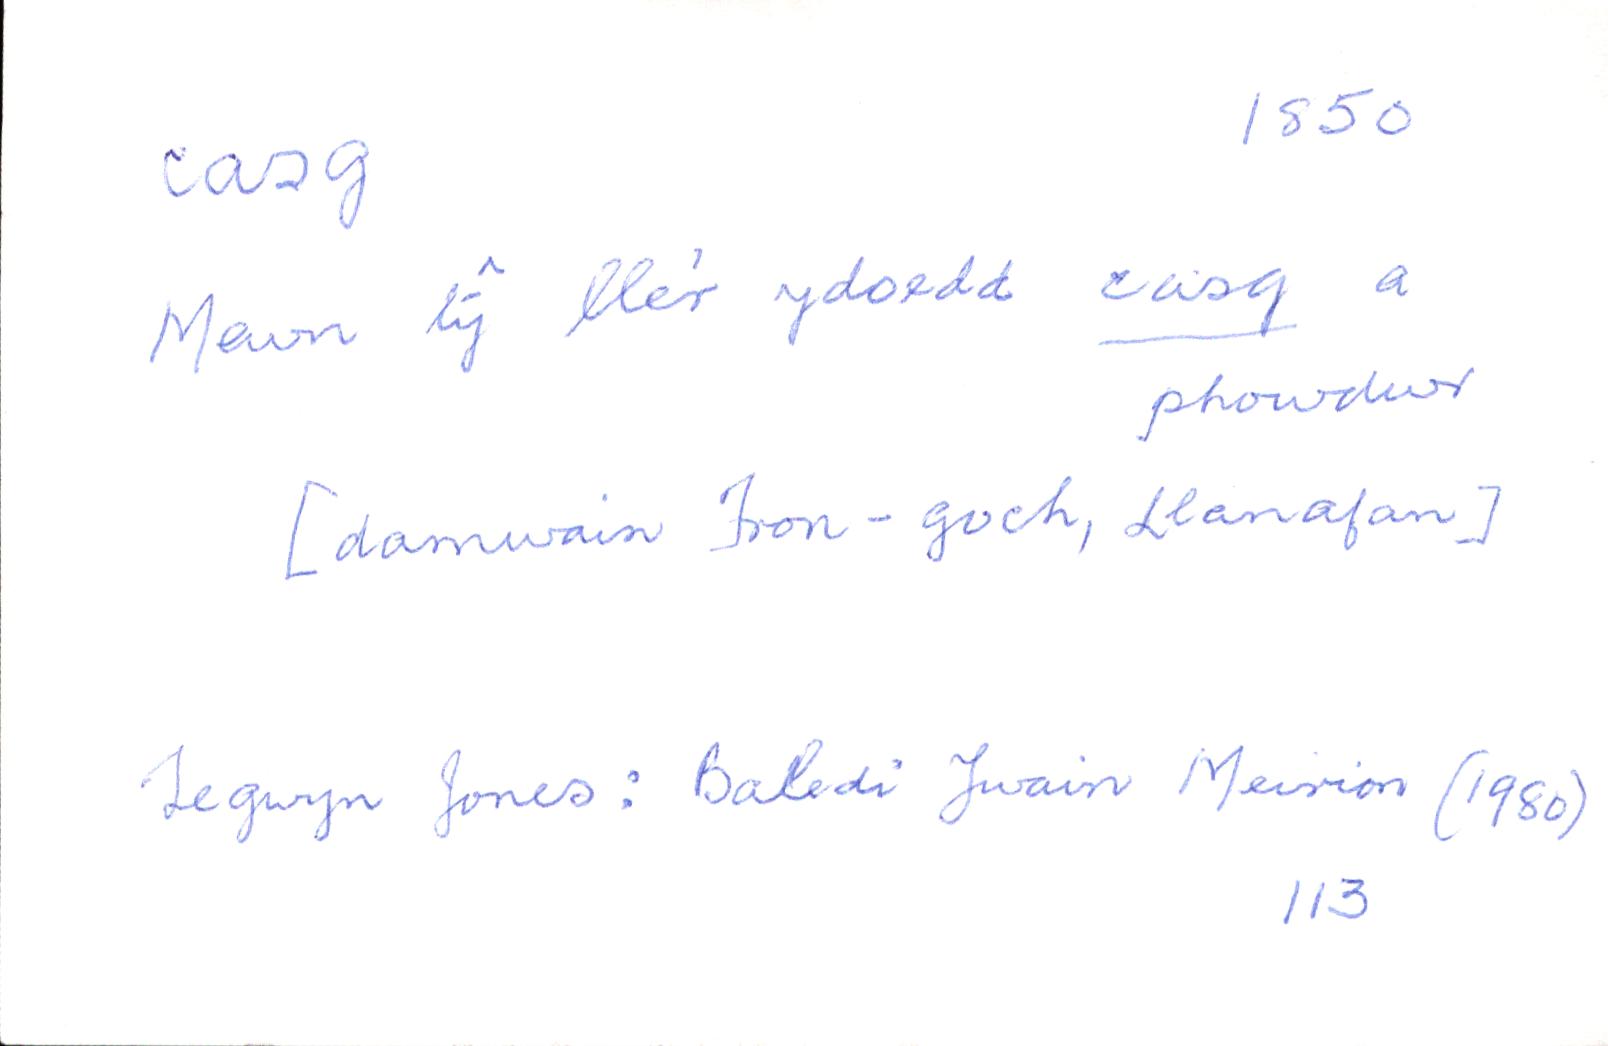 1850
casg
Mewn tŷ lle'r ydoedd casg a
phowdwr
[damwain Fron-goch, Llanafan]
Tegwyn Jones: Baledi Ywain Meirion (1980)
113